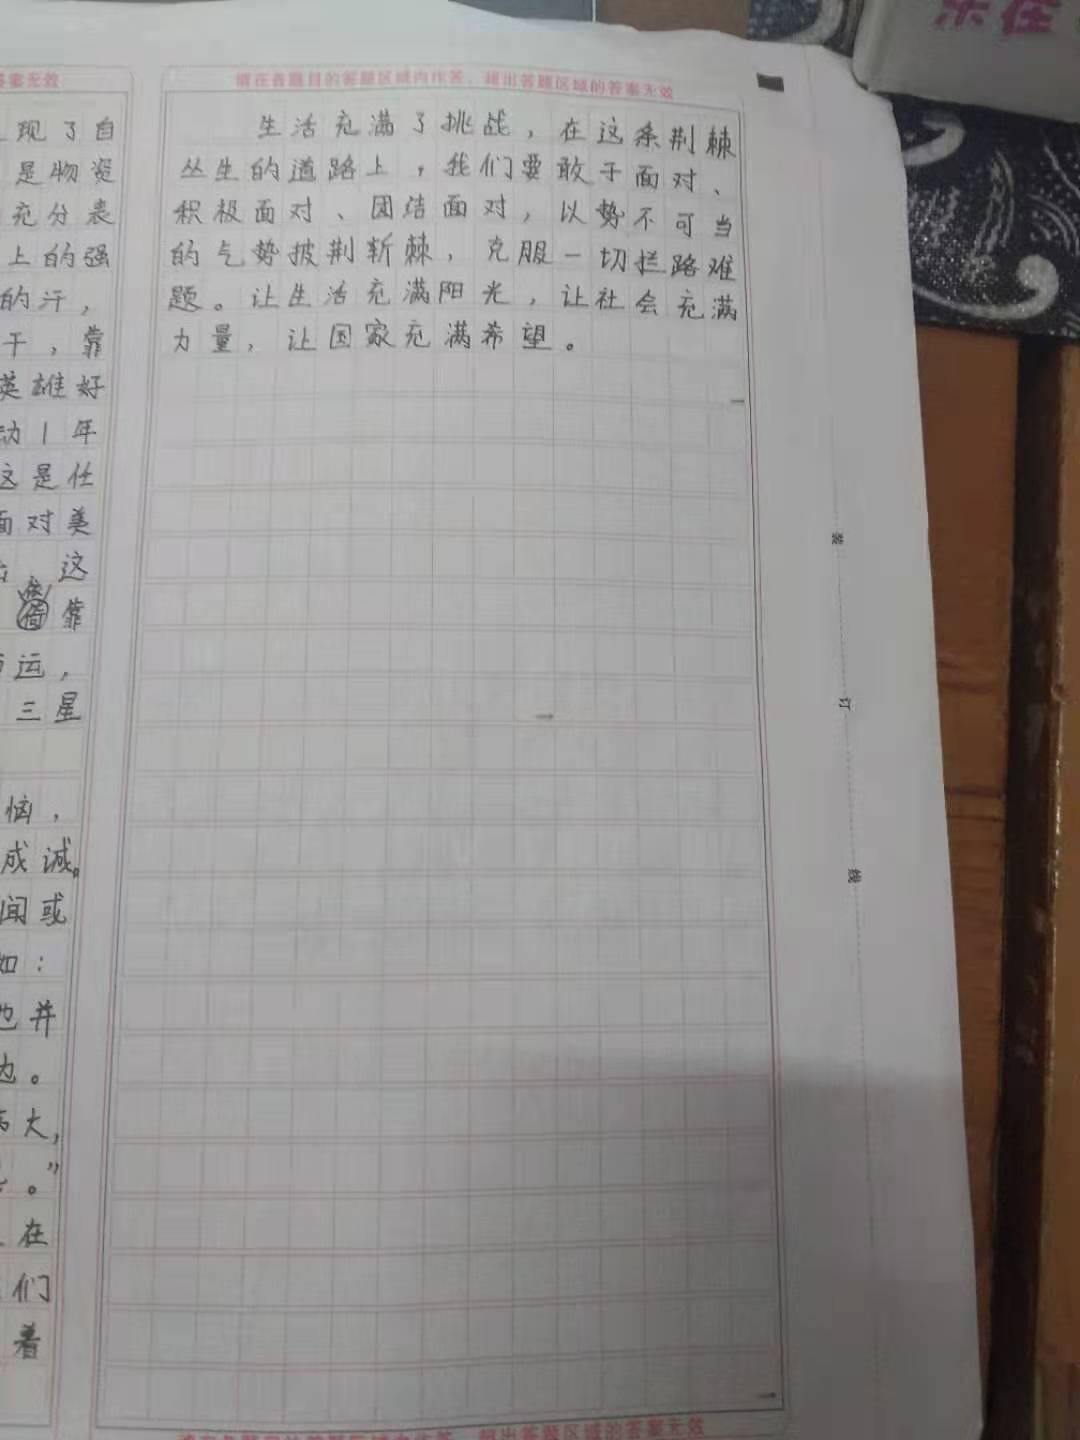 东在
答案无效
请在各题目的答题区域内作答，超出答题区域的答案无效
现了自
是物资
充分表
上的强
的汗，
干，靠
英雄好
动1年
这是任
面对美
这
靠
运，
三星
恼，
成诚。
闻或
如：
也并
边。
大，
。”
在
们
着
生活充满了挑战，在这条荆棘
丛生的道路上，我们要敢于面对、
积极面对、团结面对，以势不可当
的气势披荆斩棘，克服一切拦路难
题。让生活充满阳光，让社会充满
力量，让国家充满希望。
装
订
线
请在各题目的答题区域内作答，超出答题区域的答案无效